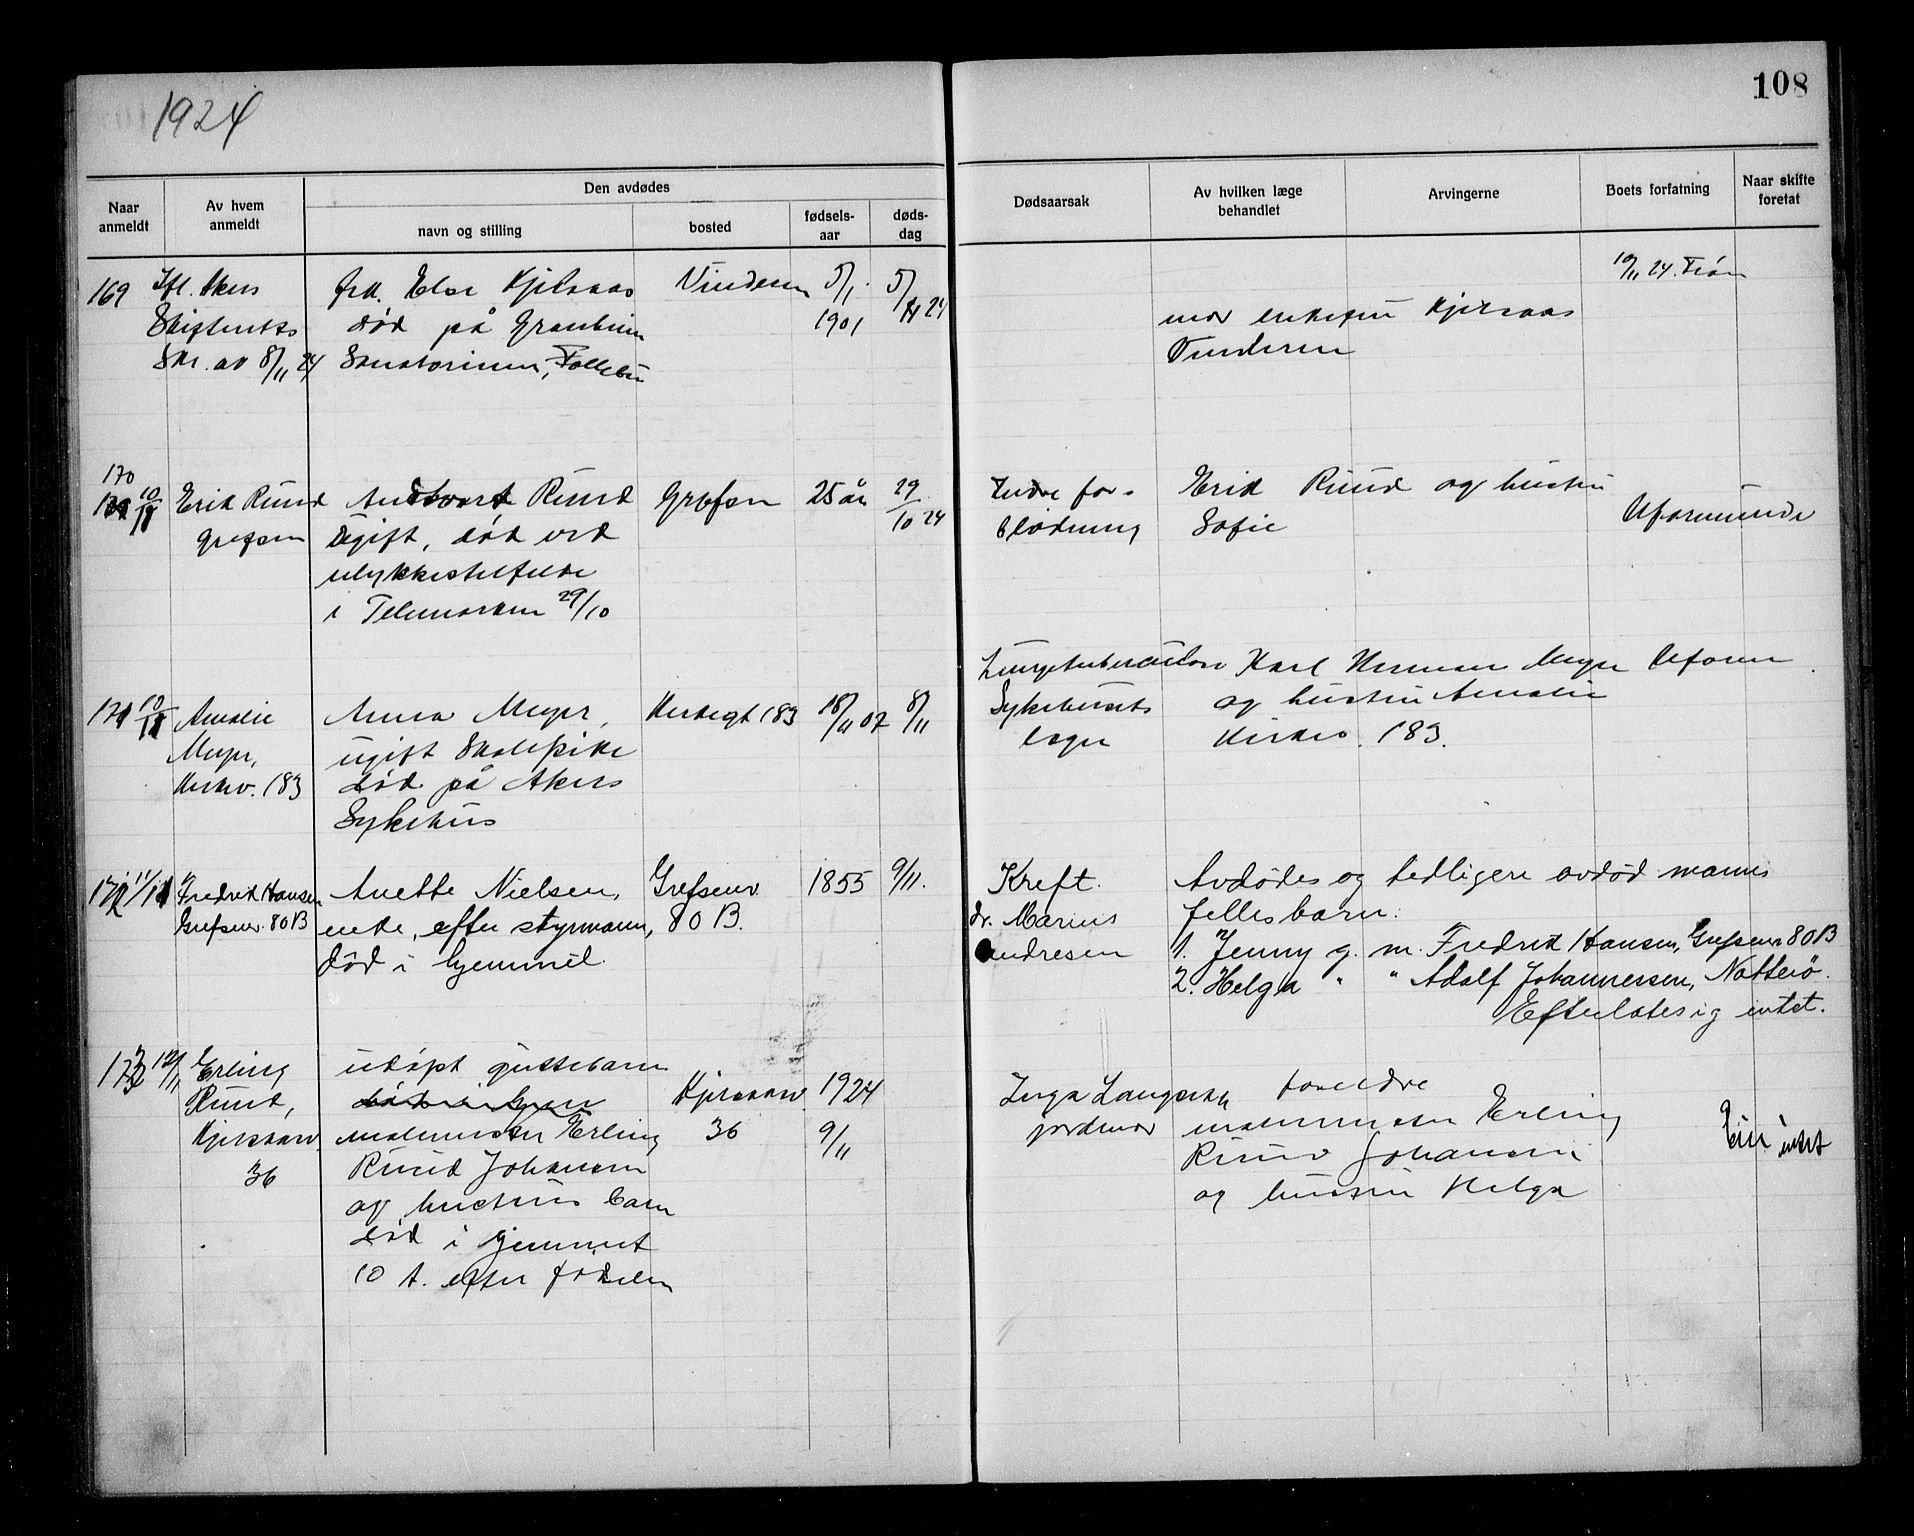 1924
108
Naar anmeldt
Av hvem anmeldt
Den avdødes
navn og stilling
bosted
fødsels-aar
døds-dag
Dødsaarsak
Av hvilken læge behandlet
Arvingerne
Boets forfatning
Naar skifte foretat
169
Ifl. Akers
Skifteretts
Skr. av 8/11 24
frk. Else Kjelsaas
død på Granheim
Sanatorium, Follebu
Vinderen
5/1
1901
5/11 24
mor enkefru Kjelsaas
Vinderen
10/11 24.
170
10/11
Erik Ruud
Grefsen
Ruud
Ugift, død ved
ulykkestilfelde
i Telemarken 29/10
Grefsen
25 år
29/10 24
Indre for-
blødning
Erik Ruud og hustru
Sofie
Uformuende
171
10/11
Amalie
Meyer,
Kirkev. 183
Anna Meyer,
ugift Skolepike
død på Akers
Sykehus
183
18/11 07
8/11
Lungetuberculose
Sykehusets
læge
Karl Herman Meyer
og hustru Amalie
Kirkev. 183.
Uform
172
11/11
Fredrik Hansen
Grefsenv. 80 B
Anette Nielsen,
enke, efter styrmann,
død i hjemmet.
Grefsenv.
80 B.
1855
9/11.
Kreft.
dr. Marius
Andresen
Avdødes og tidligere avdød manns
fellesbarn:
1. Jenny g. m. Fredrik Hansen, Grefsenv 80 B
2. Helga " " Adolf Johannessen, Nøtterø.
Efterlates ig intet.
173
12/11
Erling
Ruud,
Kjelsaasv.
36
udøpt guttebarn
malermester Erling
Ruud Johansen
og hustrus barn
død i hjemmet
10 t. efter fødselen
Kjelsaasv.
36
1924
9/11
Inga
jordmor
foreldre
malermester Erling
Ruud Johansen
og hustru Helga
Eier intet